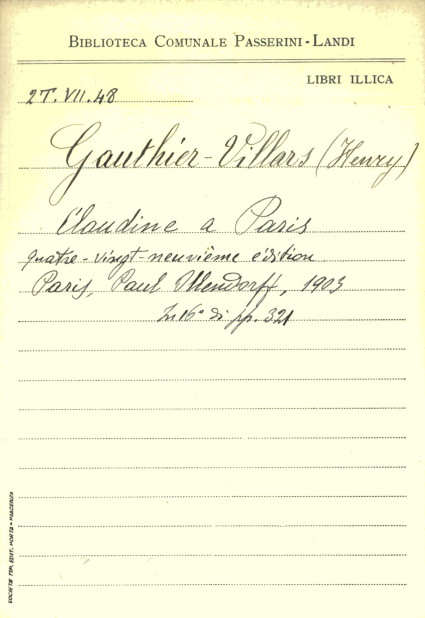 BIBLIOTECA COMUNALE PASSERINI-LANDI
LIBRI ILLICA
2T.VII.48
Gauthier-Villars (Henry)
Claudine a Paris
quatre-vingt-neuvième édition
Paris, Paul Ollendorff, 1903
In 16° di pp. 321
SOCIETÀ TIP. EDIT. PORTA - PIACENZA